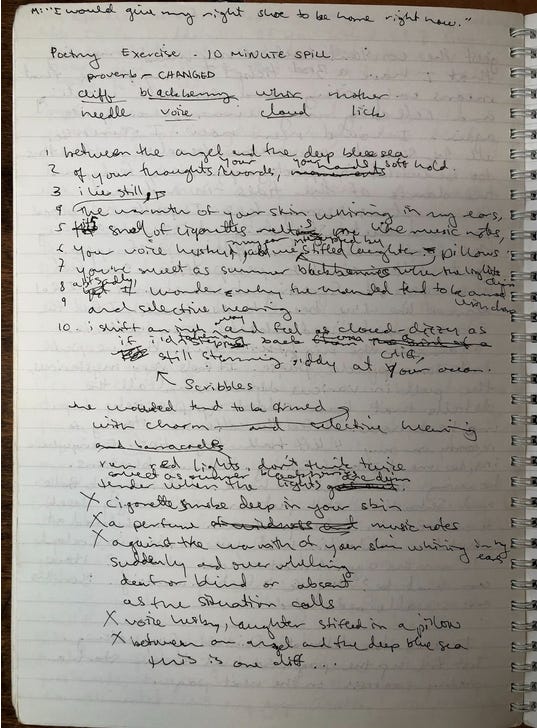 M: "I would give my right shoe to be home right now."
Poetry Exercise. 10 MINUTE SPILL
proverb - CHANGED
cliff blackberry mother
needle voice cloud lick
1 between the angel and the deep blue sea
2 of your thoughts, words, your hands' soft hold.
3 i lie still,
4 The warmth of your skin, whirring in my ears,
5 smell of cigarettes like music notes,
6 your voice husky, stifled laughter pillows
7 you're sweet as summer blackberries when the lights dim
8 I wonder why the wounded tend to be armed with charm
9 and selective hearing.
10. i shift an inch and feel as closed-dizzy as
if i'd back cliff,
still staring iddy at your ocean.
Scribbles
the wounded tend to be armed
with charm and selective hearing
and
ran red lights, don't think twice
sweet as summer the dim
tender when the lights
X cigarette smoke deep in your skin
X a perfume of music notes
X against the warmth of your skin whirring in my ears
suddenly and overwhelming
deaf or blind or absent
as the situation calls
X voice husky, laughter stifled in a pillow
X between an angel and the deep blue sea
this is one cliff ...